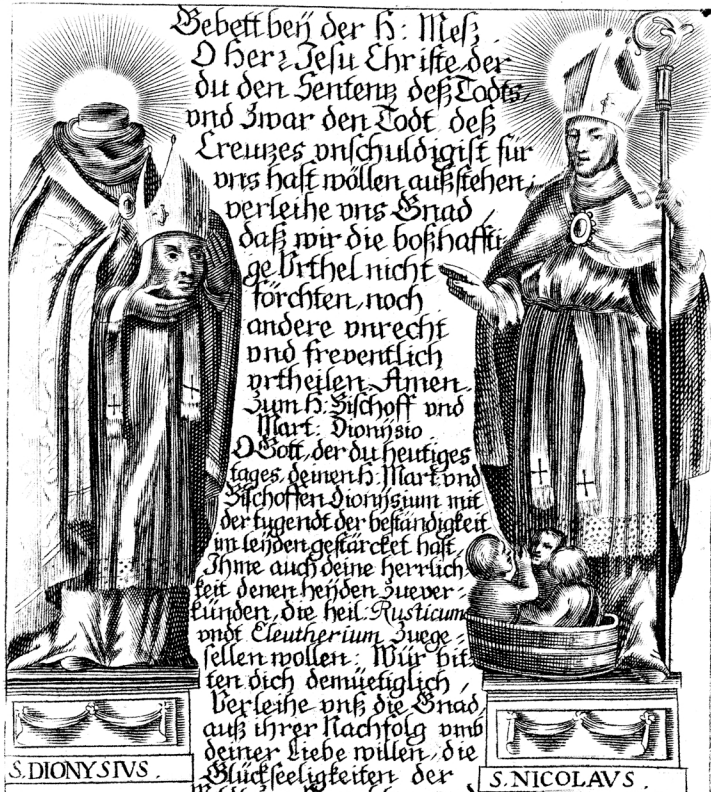 Gebett beÿ der H: Meß.
O Herr Jesu Christe der
du den Sententz deß Todts,
vnd zwar den Todt deß
Creutzes vnschuldigist für
vns hast wöllen außstehen;
verleihe vns Gnad,
daß wir die boßhaffti
ge Vrthel nicht
förchten, noch
andere vnrecht
vnd freventlich
vrtheilen. Amen.
Zum H: Bischoff vnd
Mart: Dionÿsio
O Gott, der du heutiges
tages, deinen H: Mart: vnd
Bischoffen Dionÿsium mit
der tugendt der beständigkeit
im leÿden gestärcket hast,
Ihme auch deine herrlich-
keit denen heÿden zuever-
künden, die heil: Rusticum
vndt Eleutherium zuege-
sellen wollen: Wür bit-
ten dich demüetiglich,
Verleihe vnß die Gnad
auß ihrer Nachfolg vmb
deiner Liebe willen, die
Glückseeligkeiten der
S. DIONYSIVS.
S. NICOLAVS.